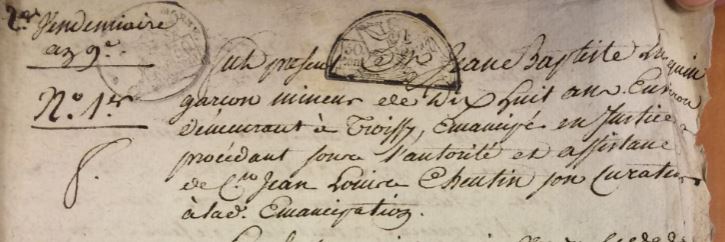 2 Vendemiaire
an 9e
No. 1er
fut présent Jean Baptiste Laquin
garçon mineur de Dix huit ans Environ
demeurant à Troissy, Emancipé en Justice
procédant sous l'autorité et assistance
de Cen Jean Louis Cheutin son Curateur
à lad. Emancipation.